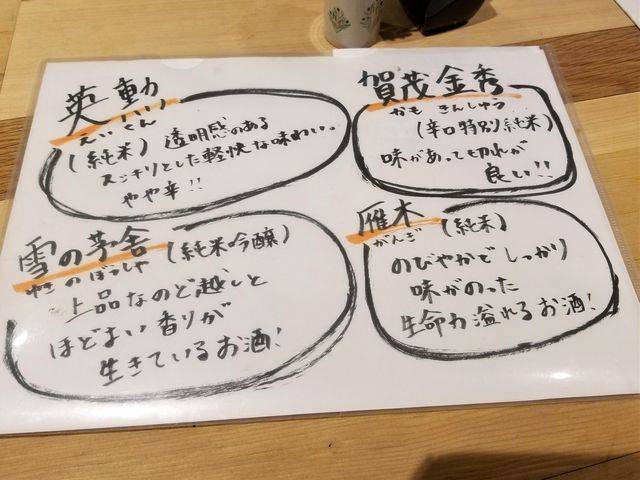 英勲
えいくん
(純米) 透明感のある
スッキリとした軽快な味わい。
やや辛!!
賀茂金秀
かも きんしゅう
(辛口特別純米)
味があって切れが
良い!!
雪の茅舎 (純米吟醸)
ゆき の ぼうしゃ
上品なのど越しと
ほどよい香りが
生きているお酒!
雁木 (純米)
がんぎ
のびやかで しっかり
味がのった
生命力溢れるお酒!